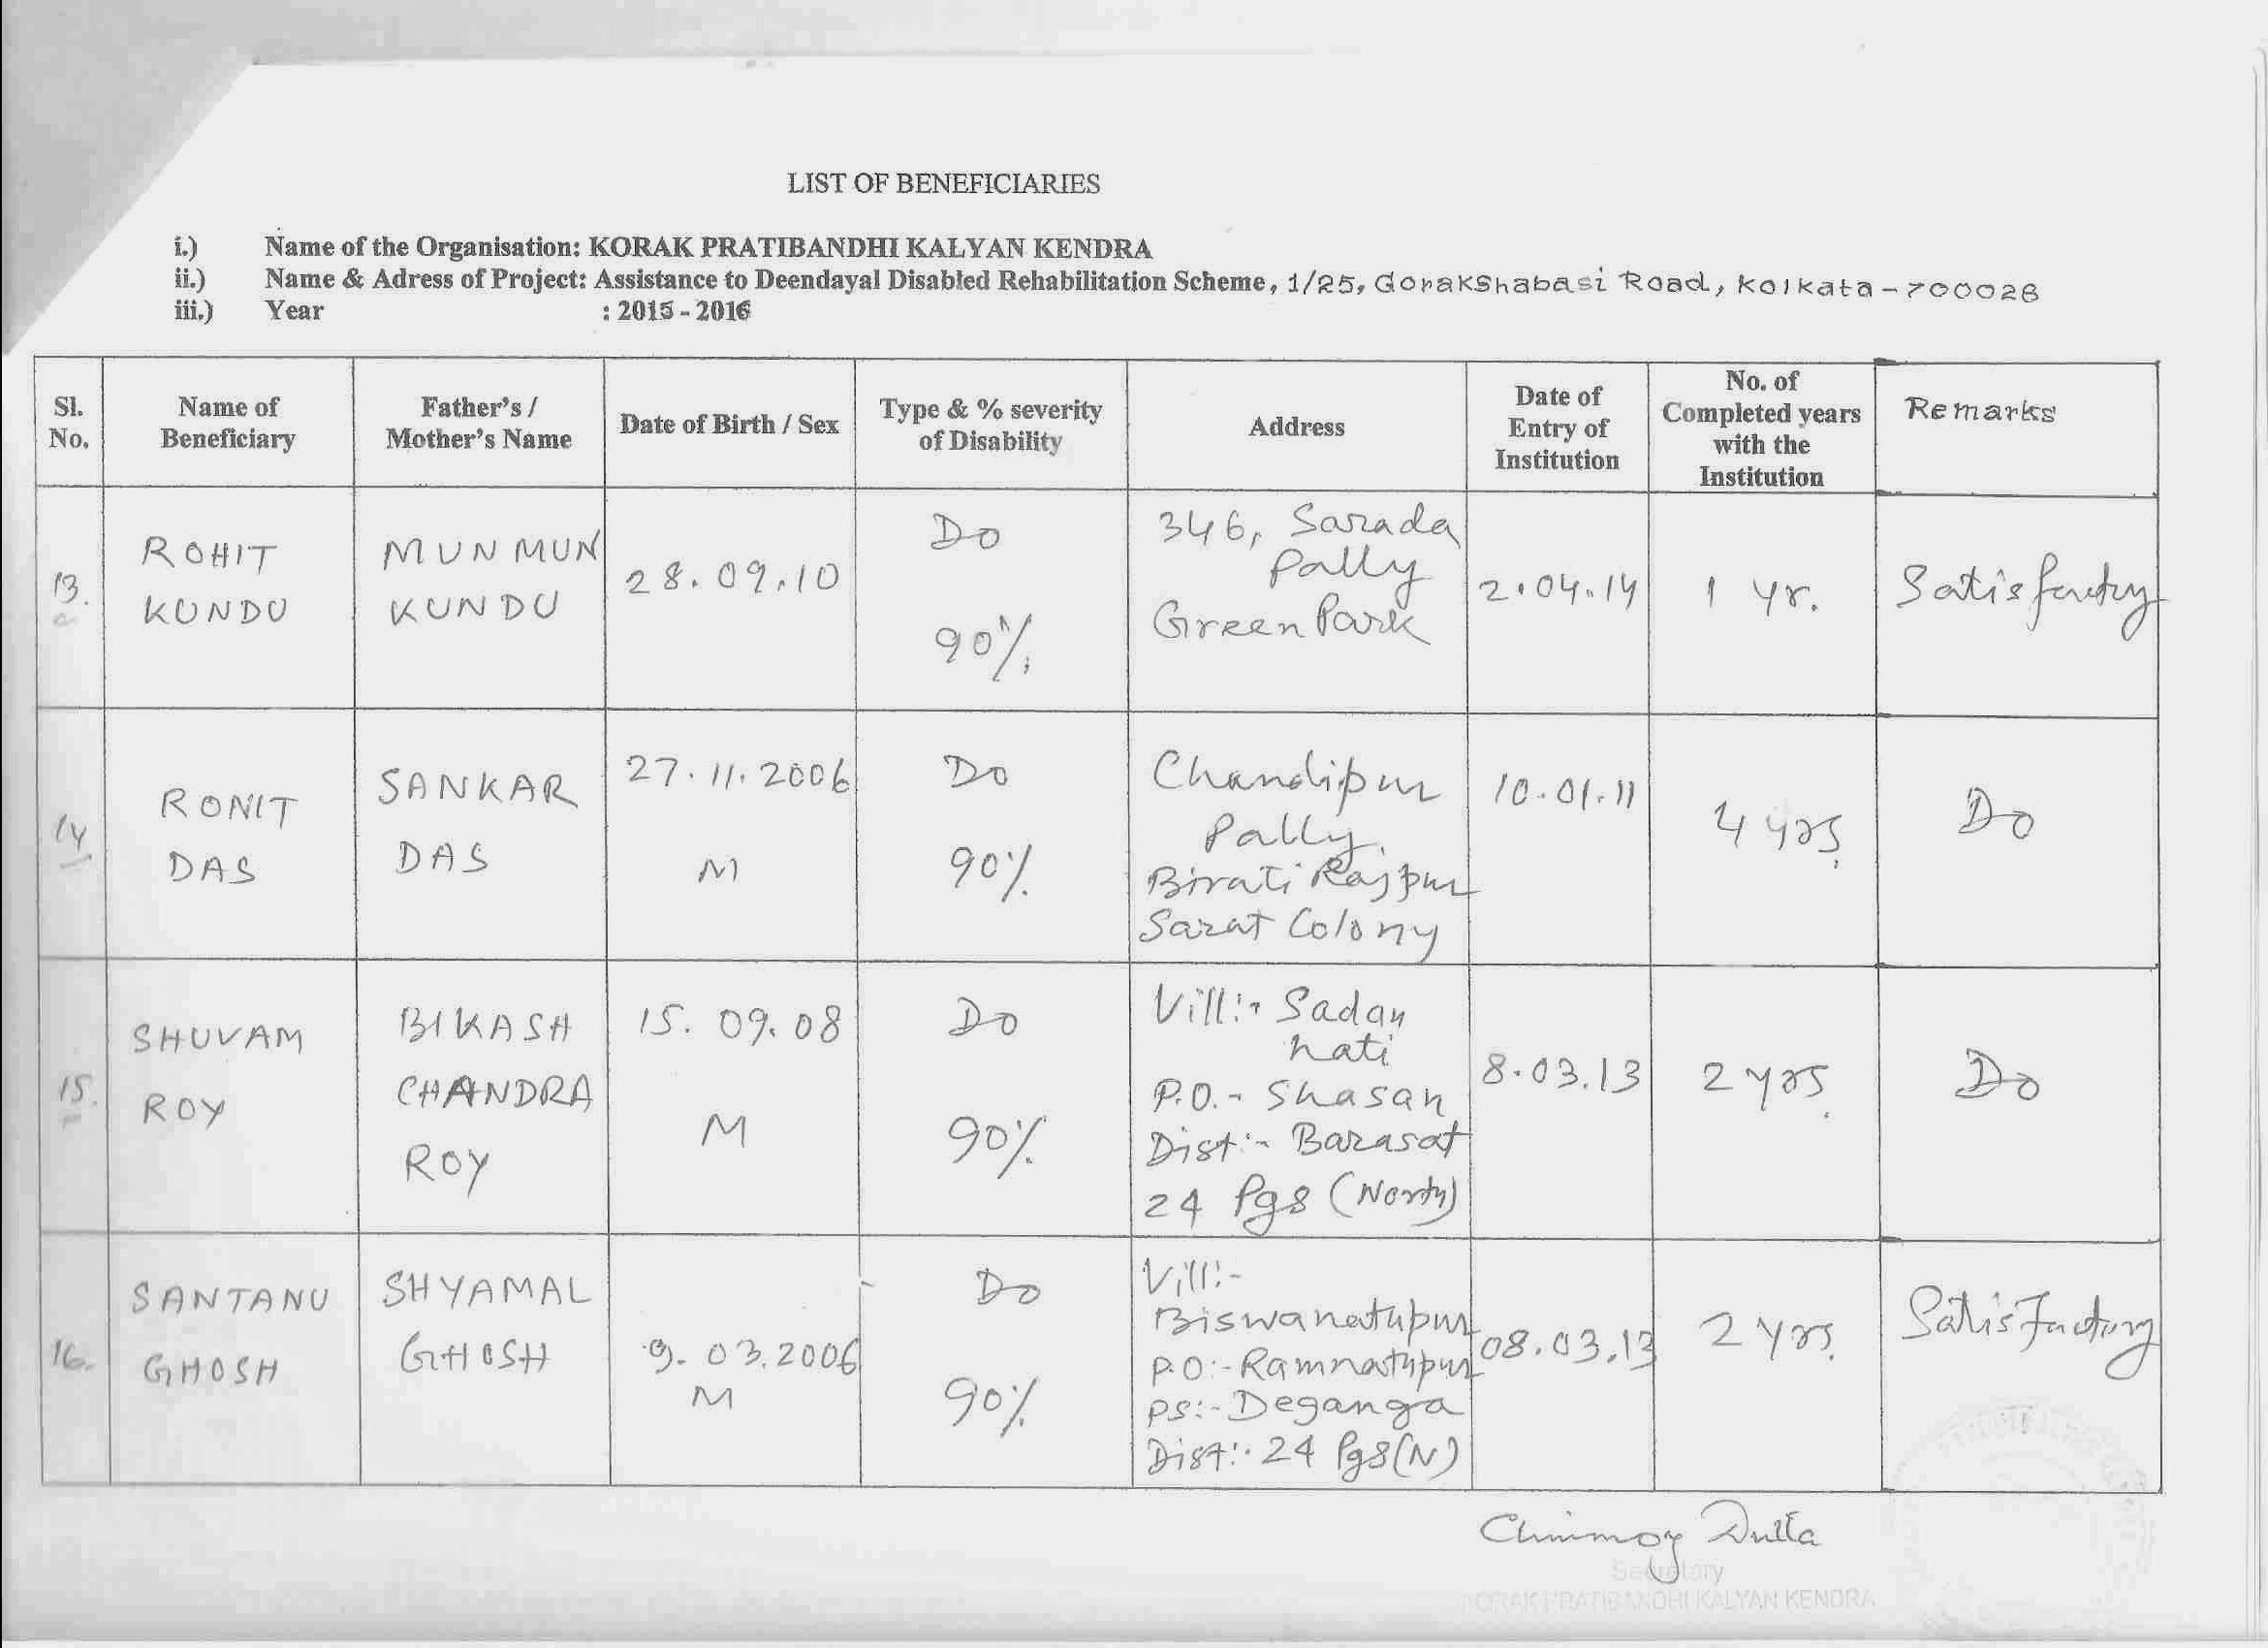 LIST OF BENEFICIARIES
i.) Name of the Organisation: KORAK PRATIBANDHI KALYAN KENDRA
ii.) Name & Adress of Project: Assistance to Deendayal Disabled Rehabilitation Scheme, 1/25, Gorakshabasi Road, Kolkata - 700028
iii.) Year : 2015 - 2016
Sl. No.
Name of Beneficiary
Father's / Mother's Name
Date of Birth / Sex
Type & % severity of Disability
Address
Date of Entry of Institution
No. of Completed years with the Institution
Remarks
13.
ROHIT
KUNDU
MUNMUN
KUNDU
28.09.10
Do
90%
346, Sarada
Pally
Green Park
2.04.14
1 yr.
Satisfactory
14
RONIT
DAS
SANKAR
DAS
27.11.2006
M
Do
90%
Chandipur
Pally
Birati Rajpur
Sarat Colony
10.01.11
4 yrs.
Do
15.
SHUVAM
ROY
BIKASH
CHANDRA
ROY
15.09.08
M
Do
90%
Vill:- Sadan
hati
P.O.- Shasan
Dist:- Barasat
24 Pgs (North)
8.03.13
2 yrs.
Do
16.
SANTANU
GHOSH
SHYAMAL
GHOSH
9.03.2006
M
Do
90%
Vill:-
Biswanathpur
P.O:- Ramnathpur
PS:- Deganga
Dist:- 24 Pgs(N)
08.03.13
2 yrs.
Satisfactory
Chinmoy Dutta
Secretary
KORAK PRATIBANDHI KALYAN KENDRA